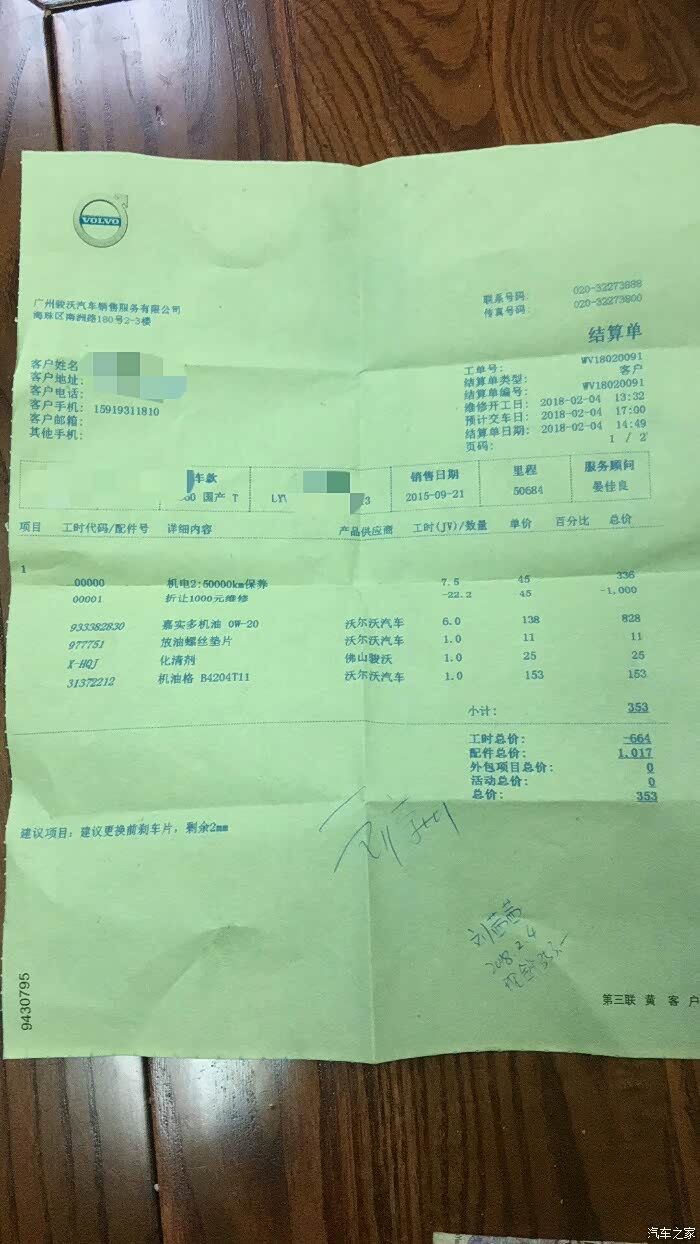 VOLVO
广州骏沃汽车销售服务有限公司
海珠区南洲路180号2-3楼
联系号码: 020-32273888
传真号码: 020-32273800
结算单
客户姓名
客户地址:
客户电话:
客户手机: 15919311810
客户邮箱:
其他手机:
工单号: WV18020091
结算单类型: 客户
结算单编号: WV18020091
维修开工日: 2018-02-04 13:32
预计交车日: 2018-02-04 17:00
结算单日期: 2018-02-04 14:49
页码: 1 / 2
车款 销售日期 里程 服务顾问
60 国产 T LY 3 2015-09-21 50684 晏佳良
项目 工时代码/配件号 详细内容 产品供应商 工时(JV)/数量 单价 百分比 总价
1
00000 机电2:50000km保养 7.5 45 336
00001 折让1000元维修 -22.2 45 -1,000
933382830 嘉实多机油 0W-20 沃尔沃汽车 6.0 138 828
977751 放油螺丝垫片 沃尔沃汽车 1.0 11 11
X-HQJ 化清剂 佛山骏沃 1.0 25 25
31372212 机油格 B4204T11 沃尔沃汽车 1.0 153 153
小计: 353
工时总价: -664
配件总价: 1,017
外包项目总价: 0
活动总价: 0
总价: 353
建议项目: 建议更换前刹车片, 剩余2mm
刘茜茜
2018.2.4
9430795
第三联 黄 客 户
汽车之家